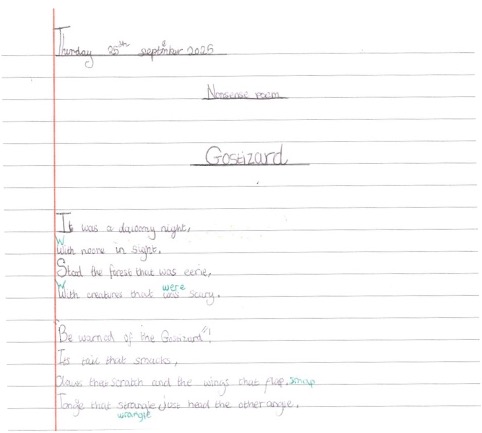 Thursday 25th September 2025
Nonsense poem
Gostizard
It was a dawomy night,
With noone in sight.
Stood the forest that was eerie,
With creatures that was were scary.
Be warned of the Gostizard"!
Its tail that smacks,
Claws that scratch and the wings that flap, snap
Tongue that strangle, just head the other angle.
wrangle